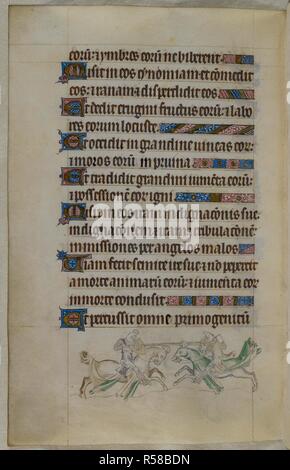 coru; ⁊ ymbres coru ne biberent.
Misit in eos cynomiam et comedit
eos: ⁊ ranam ⁊ disperdidit eos
Et dedit erugini fructus coru: ⁊ labo
res eorum locuste.
Et occidit in grandine vineas eor:
⁊ moros coru in pruina
Et tradidit grandini iumenta coru:
⁊ possessionem eor igni
Misit in eos iram indignacionis sue
indignacionem ⁊ iram ⁊ tribulacione
inmissiones per angelos malos
Uiam fecit semite ire sue ⁊ no pepercit
a morte animaru coru: ⁊ iumenta eor
in morte conclusit
Et percussit omne primogenitum
alamy
Image ID: R58BDN
www.alamy.com